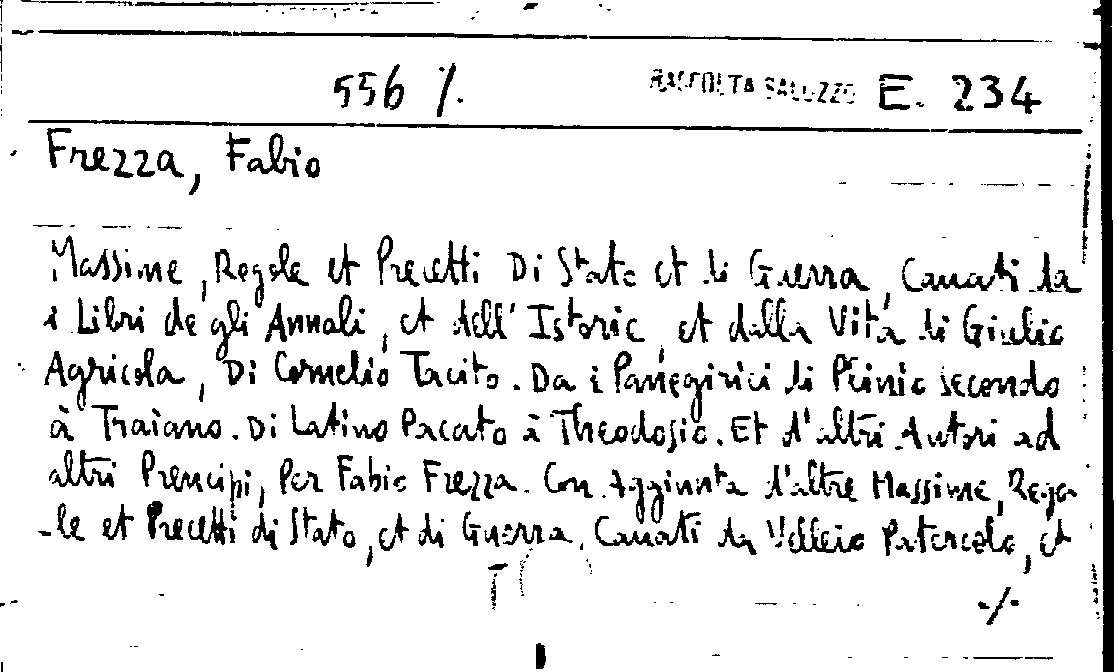 556 /. RACCOLTA SALUZZO E. 234
Frezza, Fabio
Massime, Regole et Precetti Di Stato et di Guerra, Cauati da
i Libri de gli Annali, et dell' Istorie, et dalla Vita di Giulio
Agricola, Di Cornelio Tacito. Da i Panegirici di Plinio secondo
à Traiano. Di Latino Pacato à Theodosio. Et d'altri Autori ad
altri Prencipi, Per Fabio Frezza. Con Aggiunta d'altre Massime, Rego
-le et Precetti di Stato, et di Guerra, Cauati da Velleio Patercolo, et
-/-